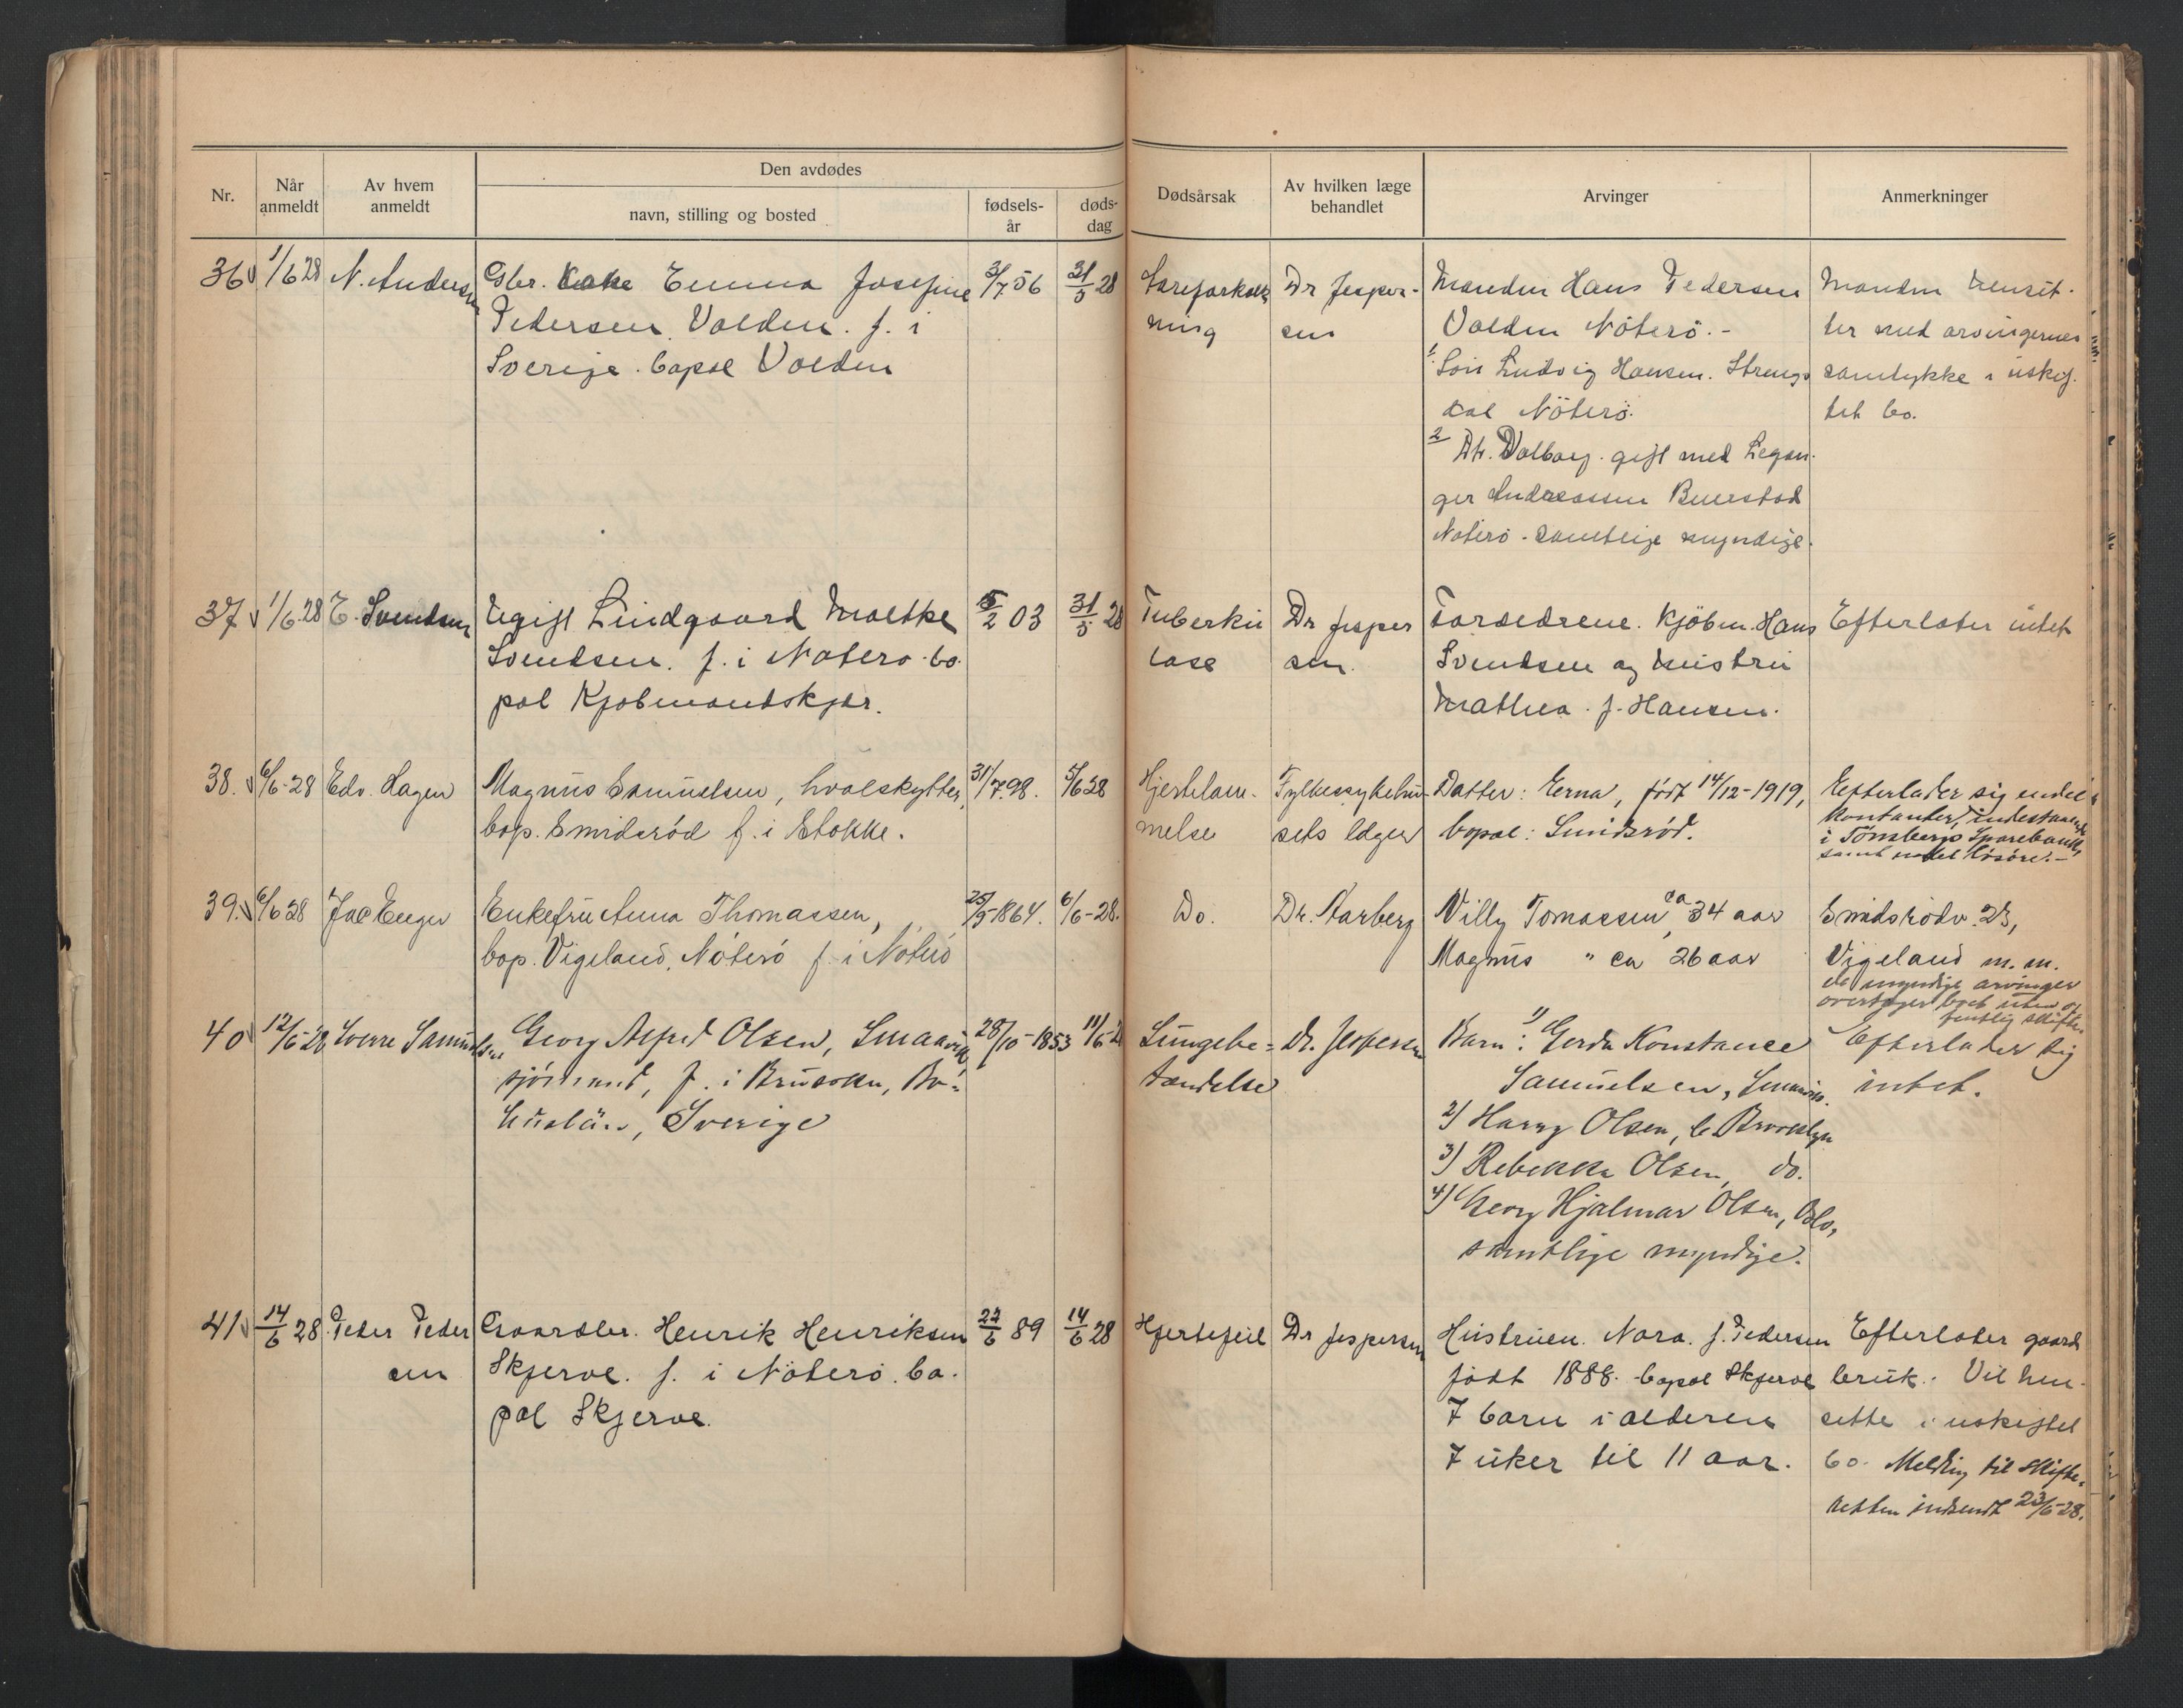 Den avdødes
Nr.
Når anmeldt
Av hvem anmeldt
navn, stilling og bosted
fødselsår
dødsdag
Dødsårsak
Av hvilken læge behandlet
Arvinger
Anmerkninger
36 1/6 28 N. Andersen
Gbr. Kone Emma Josefine
Pedersen Volden. f. i
Sverige. bopæl Volden
3/7 56 31/5 28
Aareforkalk
ning
Dr Jesper-
sen
Manden Hans Pedersen
Volden Nøterö. -
1. Sön Ludvig Hansen. Strengs
dal Nöterö.
2 Dtr. Valborg. gift med Legan-
ger Andreassen Buerstad
Noterö - samtlige myndige.
Manden hensit-
ter med arvingernes
samtykke i uskif-
tet bo.
37 1/6.28 E. Svendsen
Ugift Lindgaard Moltke
Svendsen. f. i Notero. bo-
pæl Kjobmandskjær.
5/2 03 31/5 28
Tuberku
lose
Dr Jesper
sen.
Forældrene. Kjöbm. Hans
Svendsen og hustru
Mathea. f. Hansen.
Efterlater intet
38. 6/6-28 Edv. Hagen
Magnus Samuelsen, hvalskytter,
bop. Smidsrød f. i Stokke.
31/7.98. 5/6 28
Hjertelam-
melse
Fylkessykehu-
sets læger
Datter: Erna, født 14/12-1919,
bopæl: Smidsrød.
Efterlader sig endel
kontanter, indestaaende
i Tønsbergs Sparebank,
samt endel løsøre. -
39. 6/6 28 Jac Enger
Enkefru Anna Thomassen,
bop. Vigeland, Nöterö f. i Nöterö
25/9-1864. 6/6-28.
Do.
Dr. Aarberg
Villy Tomassen, ca 34 aar
Magnus " ca 26 aar
Smidsrödv. 23,
Vigeland m. m.
de myndige arvinger
overtager boet uten of
fentlig skifte.
40 12/6-28 Sverre Samuelsen,
Georg Alfred Olsen, Smaavik
sjömand, f. i , Bo-
huslän, Sverige
28/10-1853 11/6-28
Lungebe-
tændelse
Dr. Jespersen
Barn: 1) Gerda Konstance
Samuelsen, Smaavik.
2) Harry Olsen, Brooklyn
3) Rebekka Olsen, do.
4) Georg Hjalmar Olsen, Oslo,
samtlige myndige.
Efterlader sig
intet.
41 14/6 28. Peder Peder
sen
Gaardbr. Henrik Henriksen
Skjerve. f. i Nöterö. bo-
pæl Skjerve.
22/6 89 14/6 28
Hjertefeil
Dr Jespersen
Hustruen. Nora. f. Pedersen
født 1888. bopæl Skjerve
7 barn i alderen
7 uker til 11 aar.
Efterlater gaards
bruk. Vil hen-
sette i uskiftet
bo. Melding til skifte-
retten indsendt 23/6-28.